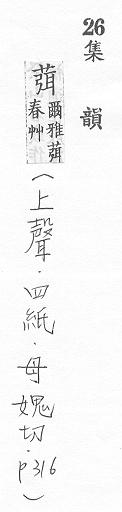 26集 韻
葞 爾雅葞
春艸
(上聲.四紙.母媿切.p316)